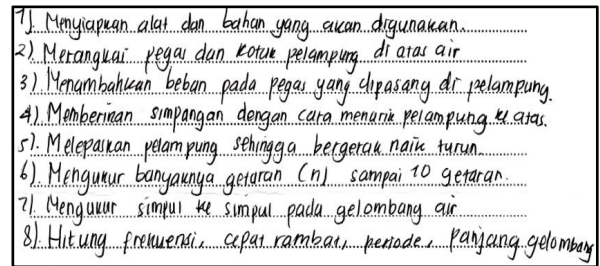 1). Menyiapkan alat dan bahan yang akan digunakan.
2). Merangkai pegas dan kotak pelampung di atas air
3). Menambahkan beban pada pegas yang dipasang di pelampung.
4). Memberikan simpangan dengan cara menarik pelampung ke atas.
5). Melepaskan pelampung sehingga bergerak naik turun
6). Mengukur banyaknya getaran (n) sampai 10 getaran.
7). Mengukur simpul ke simpul pada gelombang air
8). Hitung frekuensi, cepat rambat, periode, Panjang gelombang